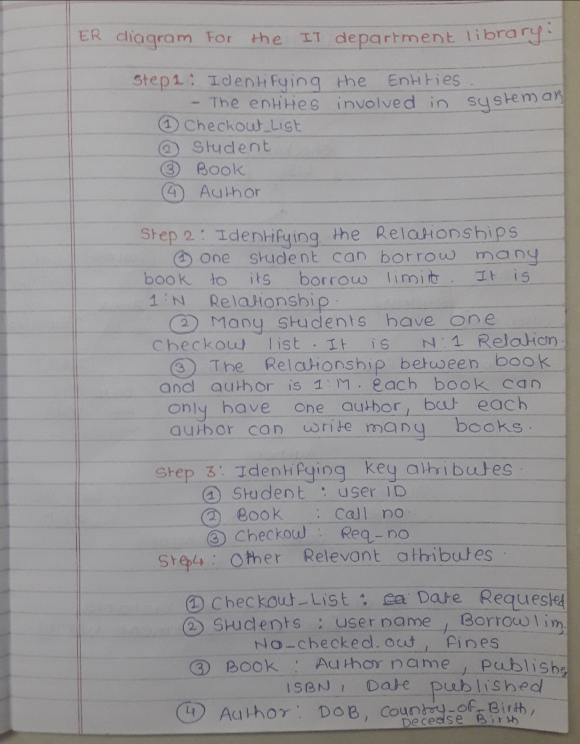 ER diagram For the IT department library:
Step1: Identifying the Entities.
- The entities involved in system ar
① Checkout_List
② Student
③ Book
④ Author
Step 2: Identifying the Relationships
① one student can borrow many
book to its borrow limit. It is
1:N Relationship.
② Many students have one
checkout list. It is N:1 Relation
③ The Relationship between book
and author is 1:M. each book can
only have one author, but each
author can write many books.
Step 3: Identifying key attributes.
① Student : user ID
② Book : call no
③ Checkout : Req-no
Step4: Other Relevant attributes.
① Checkout-List : Date Requested
② Students : username, Borrow lim
No-checked.out, Fines
③ Book : Author name, publishe
ISBN, Date published
④ Author: DOB, Country-of-Birth,
Decedse Birth